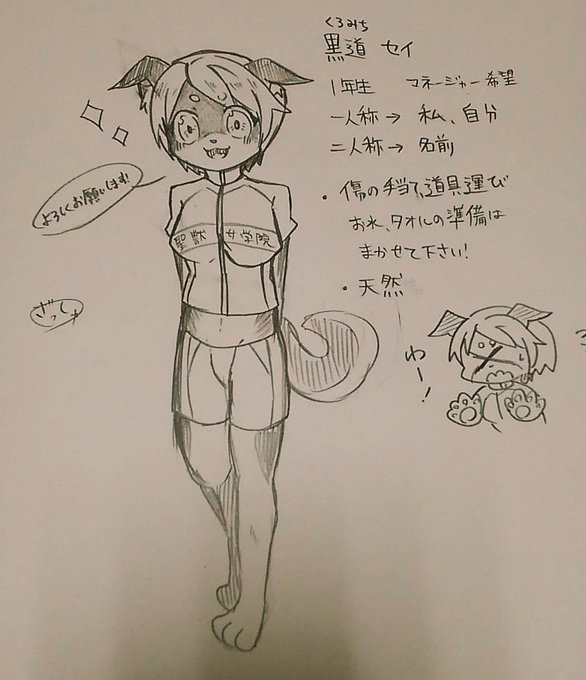 くろみち
黒道 セイ
1年生 マネージャー希望
一人称→ 私、自分
二人称→ 名前
・傷の手当て、道具運び
お水、タオルの準備は
まかせて下さい!
・天然
わー!
よろしくお願いします!
聖獣 女学院
ざっしゅ